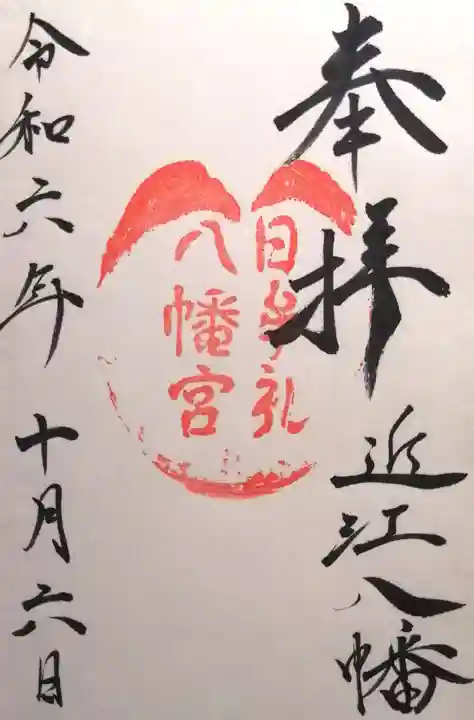 奉拝
近江八幡
日牟礼
八幡宮
令和六年十月六日